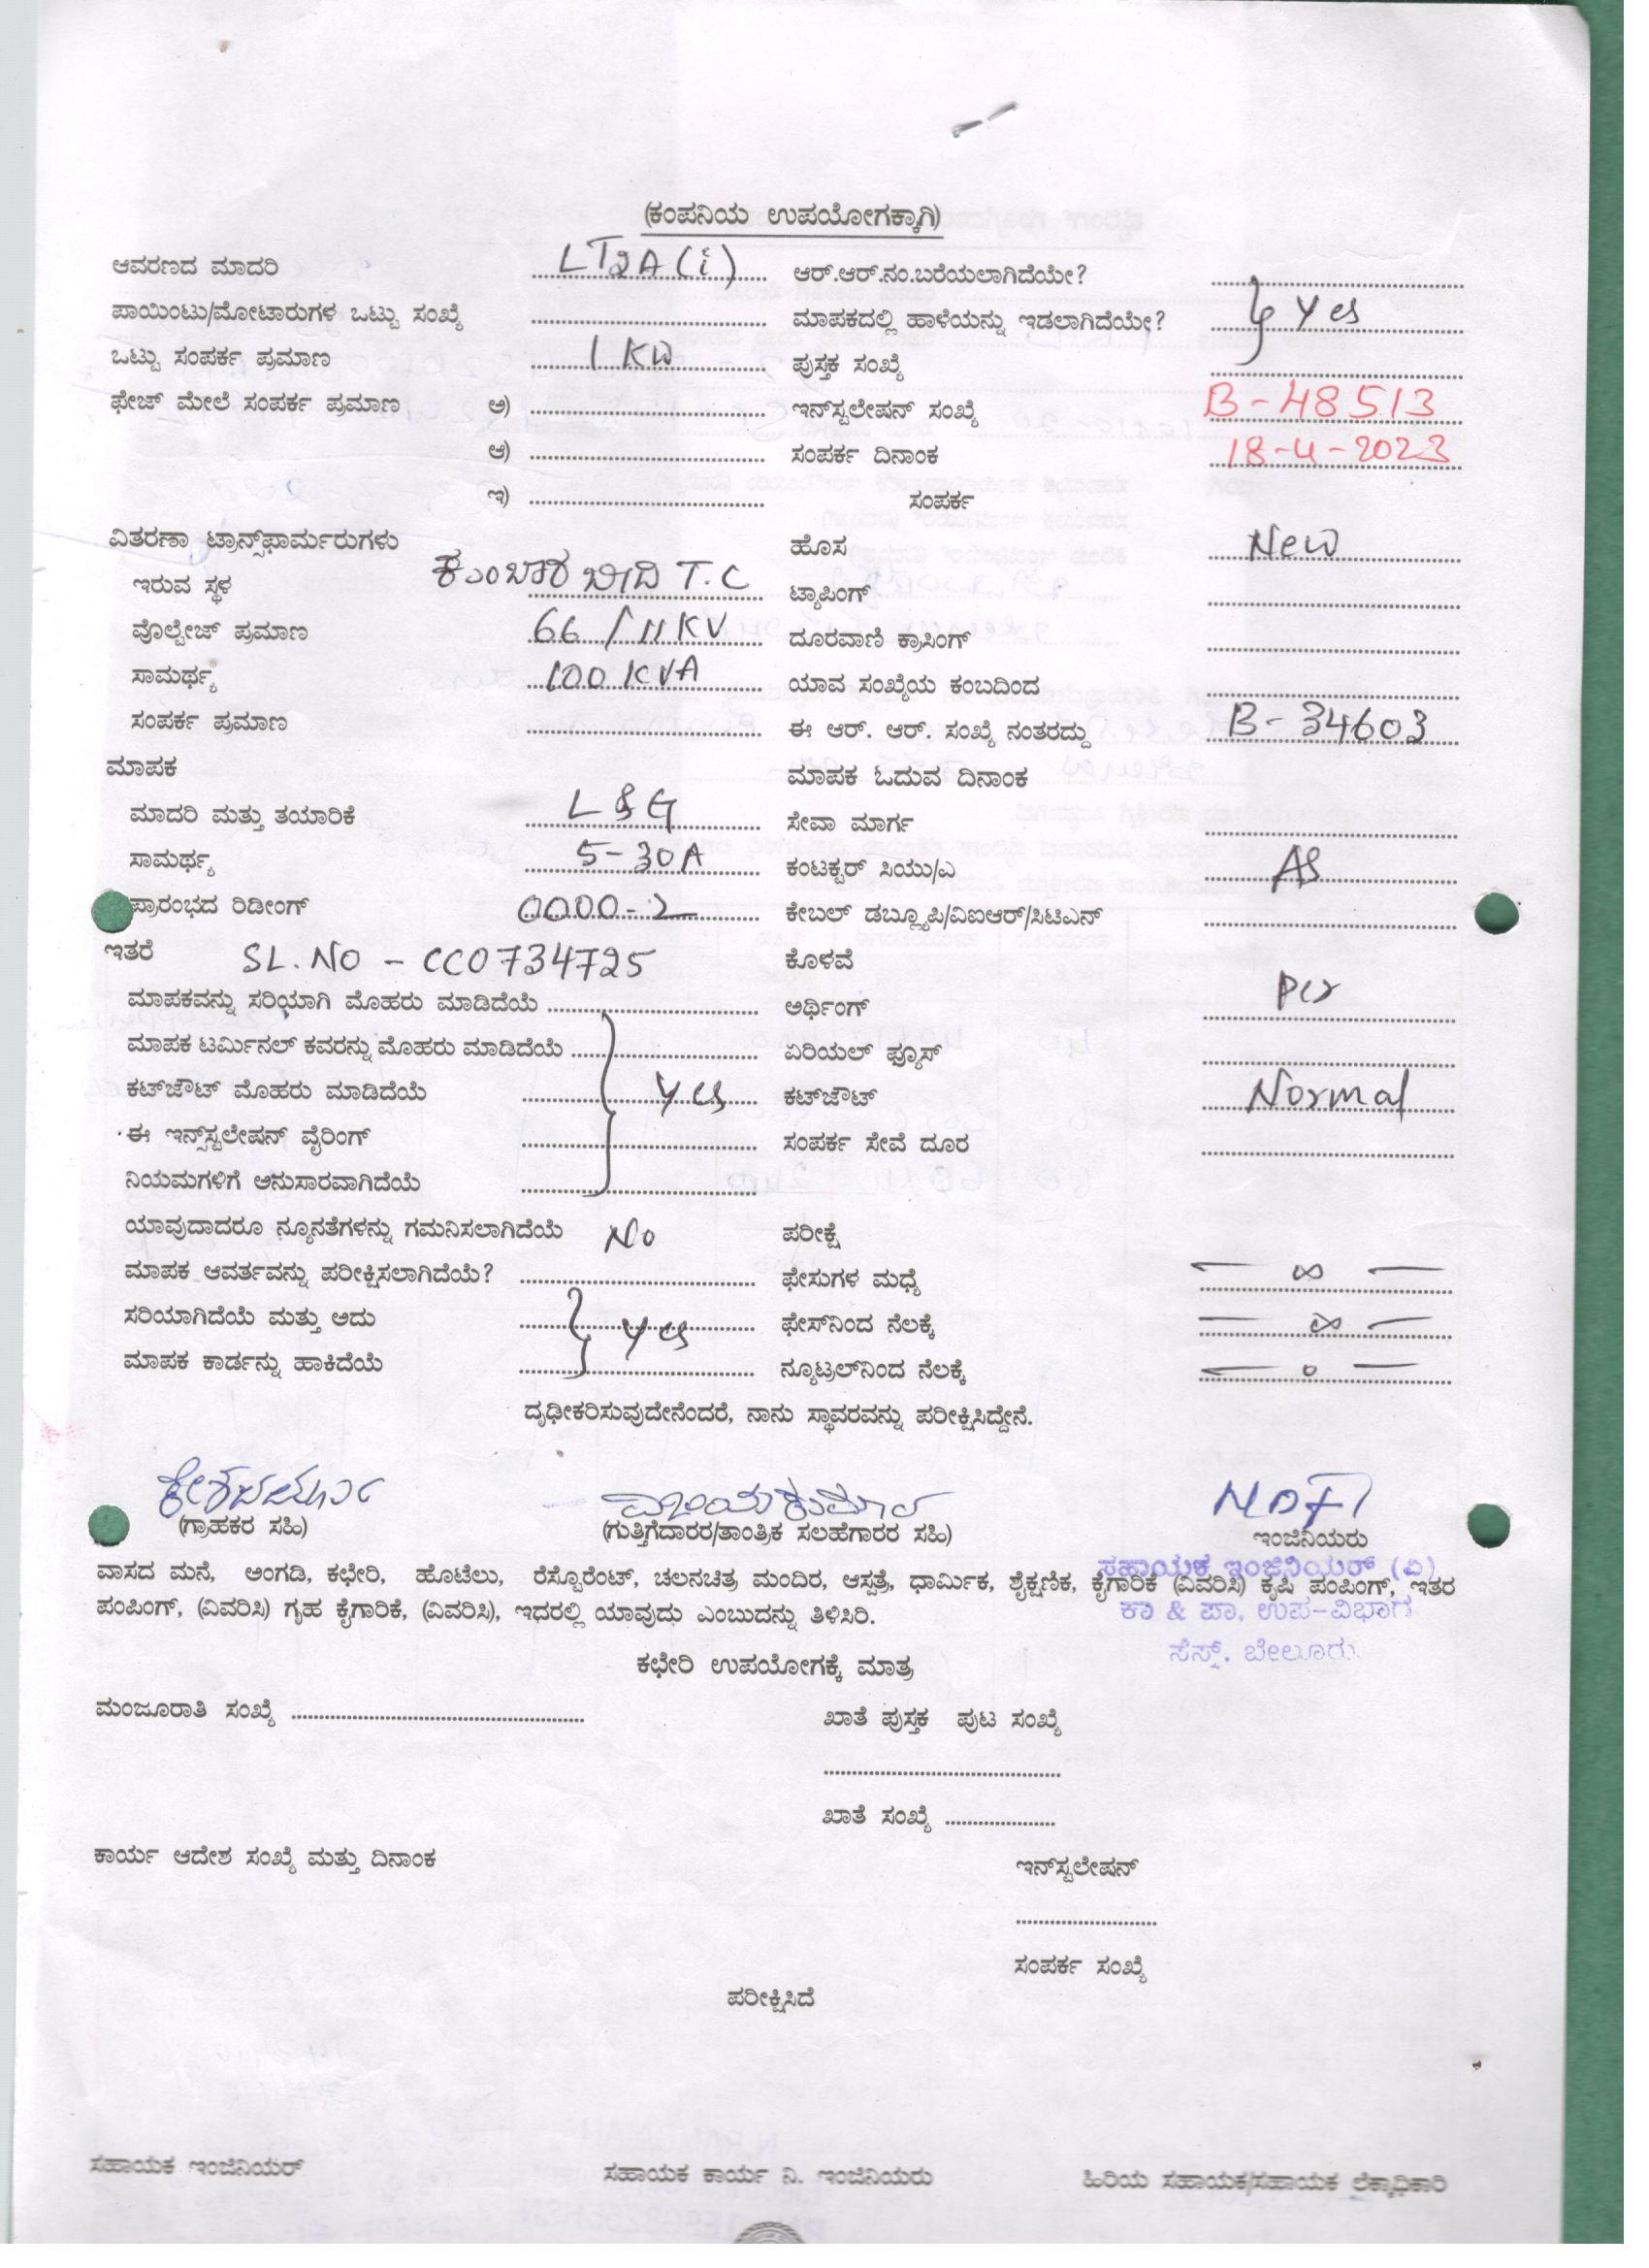 (ಕಂಪನಿಯ ಉಪಯೋಗಕ್ಕಾಗಿ)
ಆವರಣದ ಮಾದರಿ LT2A(i) ಆರ್.ಆರ್.ನಂ.ಬರೆಯಲಾಗಿದೆಯೇ?
ಪಾಯಿಂಟು/ಮೋಟಾರುಗಳ ಒಟ್ಟು ಸಂಖ್ಯೆ ಮಾಪಕದಲ್ಲಿ ಹಾಳೆಯನ್ನು ಇಡಲಾಗಿದೆಯೇ? Yes
ಒಟ್ಟು ಸಂಪರ್ಕ ಪ್ರಮಾಣ 1 KW ಪುಸ್ತಕ ಸಂಖ್ಯೆ
ಫೇಜ್ ಮೇಲೆ ಸಂಪರ್ಕ ಪ್ರಮಾಣ ಅ) ಇನ್‌ಸ್ಟಲೇಷನ್ ಸಂಖ್ಯೆ B-48513
ಆ) ಸಂಪರ್ಕ ದಿನಾಂಕ 18-4-2023
ಇ) ಸಂಪರ್ಕ
ವಿತರಣಾ ಟ್ರಾನ್ಸ್‌ಫಾರ್ಮರುಗಳು ಹೊಸ New
ಇರುವ ಸ್ಥಳ ಕುಂಬಾರ ಬೀದಿ T.C ಟ್ಯಾಪಿಂಗ್
ವೊಲ್ಟೇಜ್ ಪ್ರಮಾಣ 66/11KV ದೂರವಾಣಿ ಕ್ರಾಸಿಂಗ್
ಸಾಮರ್ಥ್ಯ 100 KVA ಯಾವ ಸಂಖ್ಯೆಯ ಕಂಬದಿಂದ
ಸಂಪರ್ಕ ಪ್ರಮಾಣ ಈ ಆರ್. ಆರ್. ಸಂಖ್ಯೆ ನಂತರದ್ದು B-34603
ಮಾಪಕ ಮಾಪಕ ಓದುವ ದಿನಾಂಕ
ಮಾದರಿ ಮತ್ತು ತಯಾರಿಕೆ L&G ಸೇವಾ ಮಾರ್ಗ
ಸಾಮರ್ಥ್ಯ 5-30A ಕಂಟಕ್ಟರ್ ಸಿಯು/ಎ AS
ಪ್ರಾರಂಭದ ರಿಡೀಂಗ್ 0000-2 ಕೇಬಲ್ ಡಬ್ಲ್ಯೂಪಿ/ವಿಐಆರ್/ಸಿಟಿಎನ್
ಇತರೆ SL.NO - CC0734725 ಕೊಳವೆ
ಮಾಪಕವನ್ನು ಸರಿಯಾಗಿ ಮೊಹರು ಮಾಡಿದೆಯೆ ಅರ್ಥಿಂಗ್
ಮಾಪಕ ಟರ್ಮಿನಲ್ ಕವರನ್ನು ಮೊಹರು ಮಾಡಿದೆಯೆ ಏರಿಯಲ್ ಫ್ಯೂಸ್
ಕಟ್‌ಜೌಟ್ ಮೊಹರು ಮಾಡಿದೆಯೆ Yes ಕಟ್‌ಜೌಟ್ Normal
ಈ ಇನ್‌ಸ್ಟಲೇಷನ್ ವೈರಿಂಗ್ ಸಂಪರ್ಕ ಸೇವೆ ದೂರ
ನಿಯಮಗಳಿಗೆ ಅನುಸಾರವಾಗಿದೆಯೆ
ಯಾವುದಾದರೂ ನ್ಯೂನತೆಗಳನ್ನು ಗಮನಿಸಲಾಗಿದೆಯೆ No ಪರೀಕ್ಷೆ
ಮಾಪಕ ಆವರ್ತವನ್ನು ಪರೀಕ್ಷಿಸಲಾಗಿದೆಯೆ? ಫೇಸುಗಳ ಮಧ್ಯೆ — ∞ —
ಸರಿಯಾಗಿದೆಯೆ ಮತ್ತು ಅದು Yes ಫೇಸ್‌ನಿಂದ ನೆಲಕ್ಕೆ — ∞ —
ಮಾಪಕ ಕಾರ್ಡನ್ನು ಹಾಕಿದೆಯೆ ನ್ಯೂಟ್ರಲ್‌ನಿಂದ ನೆಲಕ್ಕೆ — 0 —
ದೃಢೀಕರಿಸುವುದೇನೆಂದರೆ, ನಾನು ಸ್ಥಾವರವನ್ನು ಪರೀಕ್ಷಿಸಿದ್ದೇನೆ.
(ಗ್ರಾಹಕರ ಸಹಿ) (ಗುತ್ತಿಗೆದಾರರ/ತಾಂತ್ರಿಕ ಸಲಹೆಗಾರರ ಸಹಿ) ಇಂಜಿನಿಯರು
ಸಹಾಯಕ ಇಂಜಿನಿಯರ್ (ವಿ)
ವಾಸದ ಮನೆ, ಅಂಗಡಿ, ಕಛೇರಿ, ಹೊಟೆಲು, ರೆಸ್ಟೊರೆಂಟ್, ಚಲನಚಿತ್ರ ಮಂದಿರ, ಆಸ್ಪತ್ರೆ, ಧಾರ್ಮಿಕ, ಶೈಕ್ಷಣಿಕ, ಕೈಗಾರಿಕೆ (ವಿವರಿಸಿ) ಕೃಷಿ ಪಂಪಿಂಗ್, ಇತರ
ಪಂಪಿಂಗ್, (ವಿವರಿಸಿ) ಗೃಹ ಕೈಗಾರಿಕೆ, (ವಿವರಿಸಿ), ಇಧರಲ್ಲಿ ಯಾವುದು ಎಂಬುದನ್ನು ತಿಳಿಸಿರಿ.
ಕಾ & ಪಾ, ಉಪ-ವಿಭಾಗ
ಸೆಸ್ಕ್. ಬೇಲೂರು
ಕಛೇರಿ ಉಪಯೋಗಕ್ಕೆ ಮಾತ್ರ
ಮಂಜೂರಾತಿ ಸಂಖ್ಯೆ ಖಾತೆ ಪುಸ್ತಕ ಪುಟ ಸಂಖ್ಯೆ
ಖಾತೆ ಸಂಖ್ಯೆ
ಕಾರ್ಯ ಆದೇಶ ಸಂಖ್ಯೆ ಮತ್ತು ದಿನಾಂಕ ಇನ್‌ಸ್ಟಲೇಷನ್
ಸಂಪರ್ಕ ಸಂಖ್ಯೆ
ಪರೀಕ್ಷಿಸಿದೆ
ಸಹಾಯಕ ಇಂಜಿನಿಯರ್ ಸಹಾಯಕ ಕಾರ್ಯ ನಿ. ಇಂಜಿನಿಯರು ಹಿರಿಯ ಸಹಾಯಕ/ಸಹಾಯಕ ಲೆಕ್ಕಾಧಿಕಾರಿ